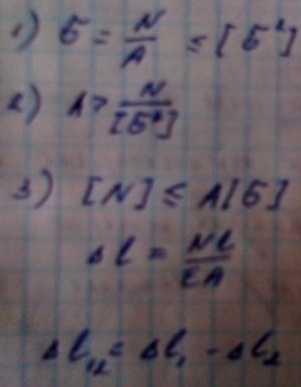 1) б = N/A ≤ [б²]
2) A > N/[б²]
3) [N] ≤ A[б]
Δl = Nl/EA
Δl₁₂ = Δl₁ - Δl₂